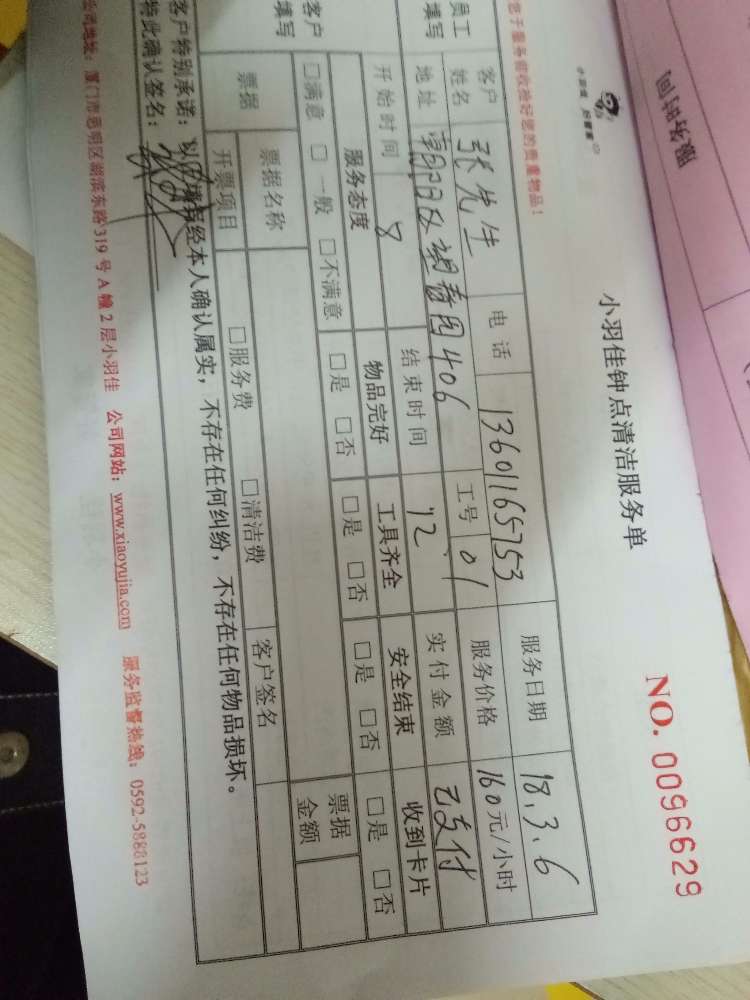 服务时间
小羽佳钟点清洁服务单
NO. 0096629
小羽佳 好管家
您于服务前收捡好您的贵重物品！
员工填写
客户姓名 张先生 电话 13601165753 服务日期 18.3.6
地址 406 工号 01 服务价格 160元/小时
开始时间 8 结束时间 12 实付金额 已支付
客户填写
服务态度 物品完好 工具齐全 安全结束 收到卡片
□满意 □一般 □不满意 □是 □否 □是 □否 □是 □否 □是 □否
票据 票据名称 票据金额
开票项目 □服务费 □清洁费 客户签名
客户特别承诺：以上填写经本人确认属实，不存在任何纠纷，不存在任何物品损坏。
特此确认签名：
公司地址：厦门市思明区湖滨东路319号A幢2层小羽佳 公司网站：www.xiaoyujia.com 服务监督热线：0592-5888123